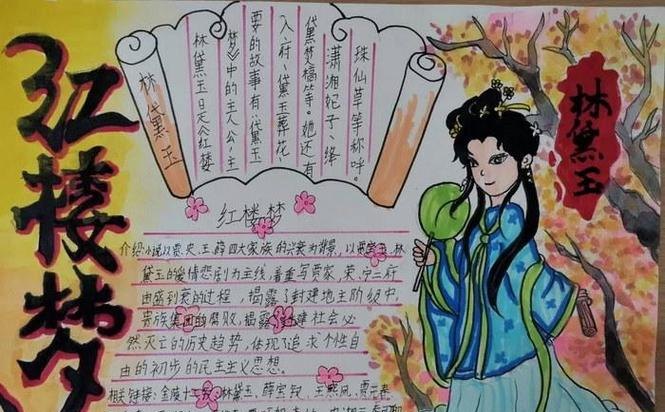 红楼梦
林黛玉
林黛玉是《红楼
梦》中的主人公,主
要的故事有:黛玉
入府、黛玉葬花
黛焚稿等。她还有
潇湘妃子、绛
珠仙草等称呼。
林黛玉
红楼梦
介绍:小说以贾、史、王、薛四大家族的兴衰为背景,以贾宝玉、林
黛玉的爱情悲剧为主线,着重写贾家、荣、宁二府
由盛到衰的过程,揭露了封建地主阶级中,
贵族集团的腐败,揭露封建社会必
然灭亡的历史趋势,体现了追求个性自
由的初步的民主主义思想。
相关链接:金陵十二钗:林黛玉、薛宝钗、王熙凤、贾元春、